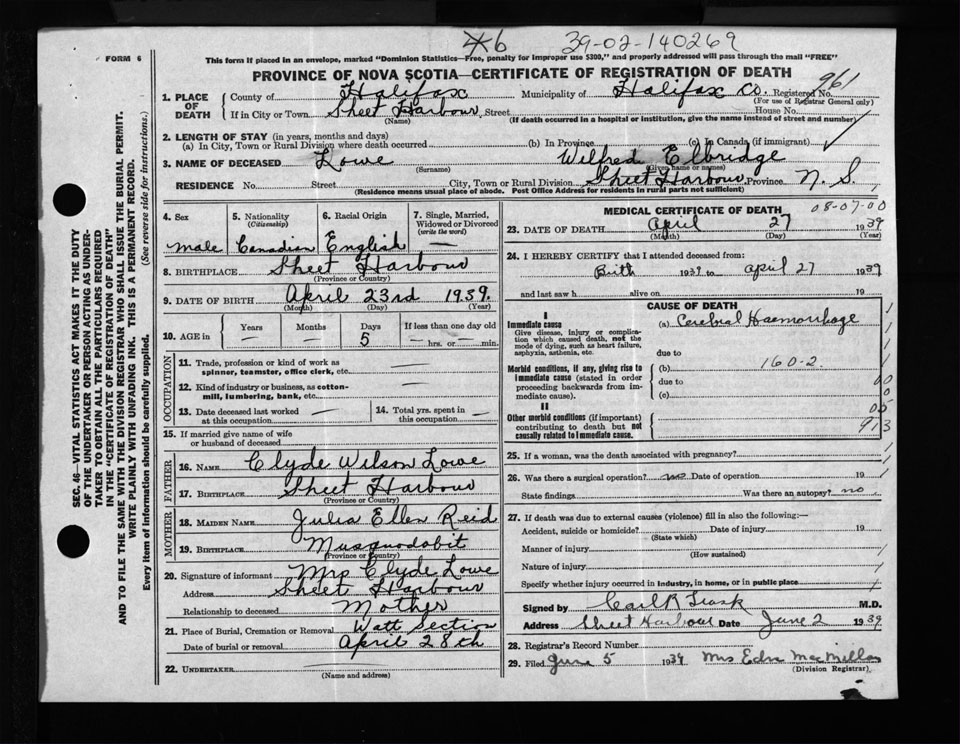 FORM 6
39-02-140269
This form if placed in an envelope, marked "Dominion Statistics—Free, penalty for improper use $300," and properly addressed will pass through the mail "FREE"
PROVINCE OF NOVA SCOTIA—CERTIFICATE OF REGISTRATION OF DEATH
961
1. PLACE OF DEATH County of Halifax Municipality of Halifax Co. Registered No.
(For use of Registrar General only)
If in City or Town Sheet Harbour Street House No.
(Name) (If death occurred in a hospital or institution, give the name instead of street and number)
2. LENGTH OF STAY (in years, months and days)
(a) In City, Town or Rural Division where death occurred (b) In Province (c) In Canada (if immigrant)
3. NAME OF DECEASED Lowe Wilfred Elbridge
(Surname) (Given name or names)
RESIDENCE No. Street City, Town or Rural Division Sheet Harbour Province N. S.
(Residence means usual place of abode. Post Office Address for residents in rural parts not sufficient)
4. Sex
male
5. Nationality
(Citizenship)
Canadian
6. Racial Origin
English
7. Single, Married, Widowed or Divorced
(write the word)
—
8. BIRTHPLACE Sheet Harbour
(Province or Country)
9. DATE OF BIRTH April 23rd 1939.
(Month) (Day) (Year)
10. AGE in Years Months Days If less than one day
— — 5 — hrs. or — min.
OCCUPATION
11. Trade, profession or kind of work as spinner, teamster, office clerk, etc. —
12. Kind of industry or business, as cotton-mill, lumbering, bank, etc. —
13. Date deceased last worked at this occupation —
14. Total yrs. spent in this occupation —
15. If married give name of wife or husband of deceased
FATHER
16. NAME Clyde Wilson Lowe
17. BIRTHPLACE Sheet Harbour
(Province or Country)
MOTHER
18. MAIDEN NAME Julia Ellen Reid
19. BIRTHPLACE Musquodobit
(Province or Country)
20. Signature of informant Mrs Clyde Lowe
Address Sheet Harbour
Relationship to deceased Mother
21. Place of Burial, Cremation or Removal Watt Section
Date of burial or removal April 28th
22. UNDERTAKER
(Name and address)
MEDICAL CERTIFICATE OF DEATH 08-07-00
23. DATE OF DEATH April 27 1939
(Month) (Day) (Year)
24. I HEREBY CERTIFY that I attended deceased from:
Birth 1939 to april 27 1939
and last saw h alive on 19
CAUSE OF DEATH
I
Immediate cause
Give disease, injury or complication which caused death, not the mode of dying, such as heart failure, asphyxia, asthenia, etc.
(a) Cerebral Haemorrhage
due to
Morbid conditions, if any, giving rise to immediate cause (stated in order proceeding backwards from immediate cause).
(b) 160-2.
due to
(c)
II
Other morbid conditions (if important) contributing to death but not causally related to immediate cause.
913
25. If a woman, was the death associated with pregnancy?
26. Was there a surgical operation? no Date of operation 19
State findings Was there an autopsy? no
27. If death was due to external causes (violence) fill in also the following:—
Accident, suicide or homicide? Date of injury 19
(State which)
Manner of injury
(How sustained)
Nature of injury
Specify whether injury occurred in industry, in home, or in public place
Signed by Carl R Trask M.D.
Address Sheet Harbour Date June 2 1939
28. Registrar's Record Number
29. Filed June 5 1939 Mrs Edna MacMillan
(Division Registrar)
SEC. 46—VITAL STATISTICS ACT MAKES IT THE DUTY
OF THE UNDERTAKER OR PERSON ACTING AS UNDER-
TAKER TO OBTAIN ALL THE PARTICULARS REQUIRED
IN THE "CERTIFICATE OF REGISTRATION OF DEATH"
AND TO FILE THE SAME WITH THE DIVISION REGISTRAR WHO SHALL ISSUE THE BURIAL PERMIT.
WRITE PLAINLY WITH UNFADING INK. THIS IS A PERMANENT RECORD.
Every item of information should be carefully supplied. (See reverse side for instructions.)